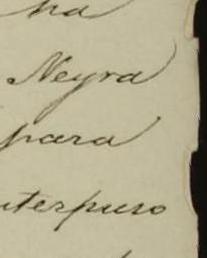 ha
Neyra
para
nterpuso